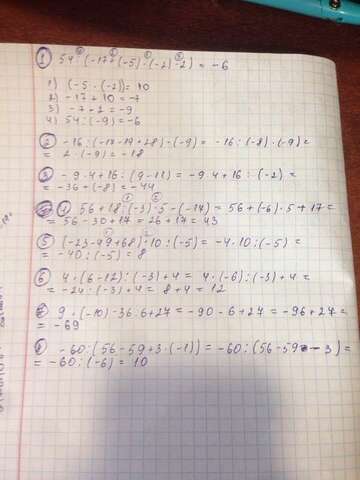 1 54 : (-17 + (-5) · (-2) - 2) = -6
1) (-5 · (-2)) = 10
2) -17 + 10 = -7
3) -7 - 2 = -9
4) 54 : (-9) = -6
2 -16 : (-17 - 19 + 28) · (-9) = -16 : (-8) · (-9) =
= 2 · (-9) = -18
3 -9 · 4 + 16 : (9 - 11) = -9 · 4 + 16 : (-2) =
= -36 + (-8) = -44
4 56 + 18 : (-3) · 5 - (-17) = 56 + (-6) · 5 + 17 =
= 56 - 30 + 17 = 26 + 17 = 43
5 (-23 - 49 + 68) · 10 : (-5) = -4 · 10 : (-5) =
= -40 : (-5) = 8
6 4 · (6 - 12) : (-3) + 4 = 4 · (-6) : (-3) + 4 =
= -24 : (-3) + 4 = 8 + 4 = 12
7 9 · (-10) - 36 : 6 + 27 = -90 - 6 + 27 = -96 + 27 =
= -69
8 -60 : (56 - 59 + 3 · (-1)) = -60 : (56 - 59 - 3) =
= -60 : (-6) = 10